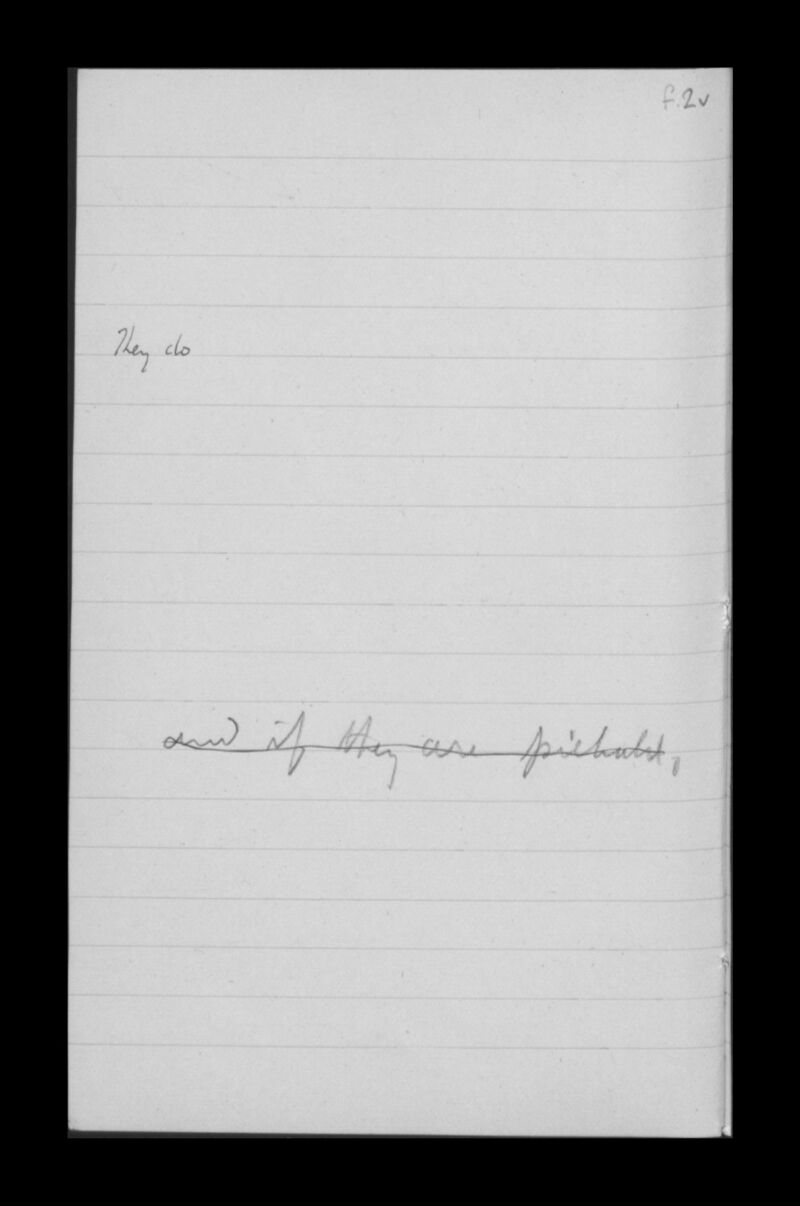 f.2v
They do
and if they are piebald,